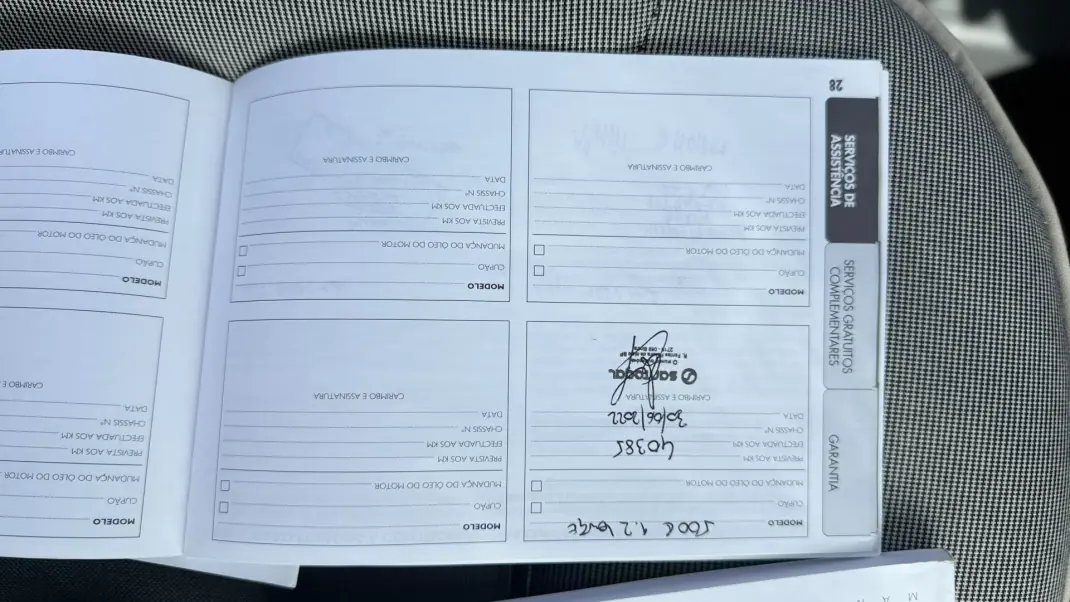 MODELO 500C 1.2 Lounge
CUPÃO
MUDANÇA DO ÓLEO DO MOTOR
PREVISTA AOS KM
EFECTUADA AOS KM 40385
CHASSIS Nº
DATA 30/06/2022
CARIMBO E ASSINATURA
santogal
MODELO
CUPÃO
MUDANÇA DO ÓLEO DO MOTOR
PREVISTA AOS KM
EFECTUADA AOS KM
CHASSIS Nº
DATA
CARIMBO E ASSINATURA
MODELO
CUPÃO
MUDANÇA DO ÓLEO DO MOTOR
PREVISTA AOS KM
EFECTUADA AOS KM
CHASSIS Nº
DATA
CARIMBO E ASSINATURA
MODELO
CUPÃO
MUDANÇA DO ÓLEO DO MOTOR
PREVISTA AOS KM
EFECTUADA AOS KM
CHASSIS Nº
DATA
CARIMBO E ASSINATURA
GARANTIA
SERVIÇOS GRATUITOS
COMPLEMENTARES
SERVIÇOS DE
ASSISTÊNCIA
28
MODELO
CUPÃO
MUDANÇA DO ÓLEO DO MOTOR
PREVISTA AOS KM
EFECTUADA AOS KM
CHASSIS Nº
DATA
CARIMBO E
MODELO
CUPÃO
MUDANÇA DO ÓLEO DO MOTOR
PREVISTA AOS KM
EFECTUADA AOS KM
CHASSIS Nº
DATA
CARIMBO E ASSINATURA